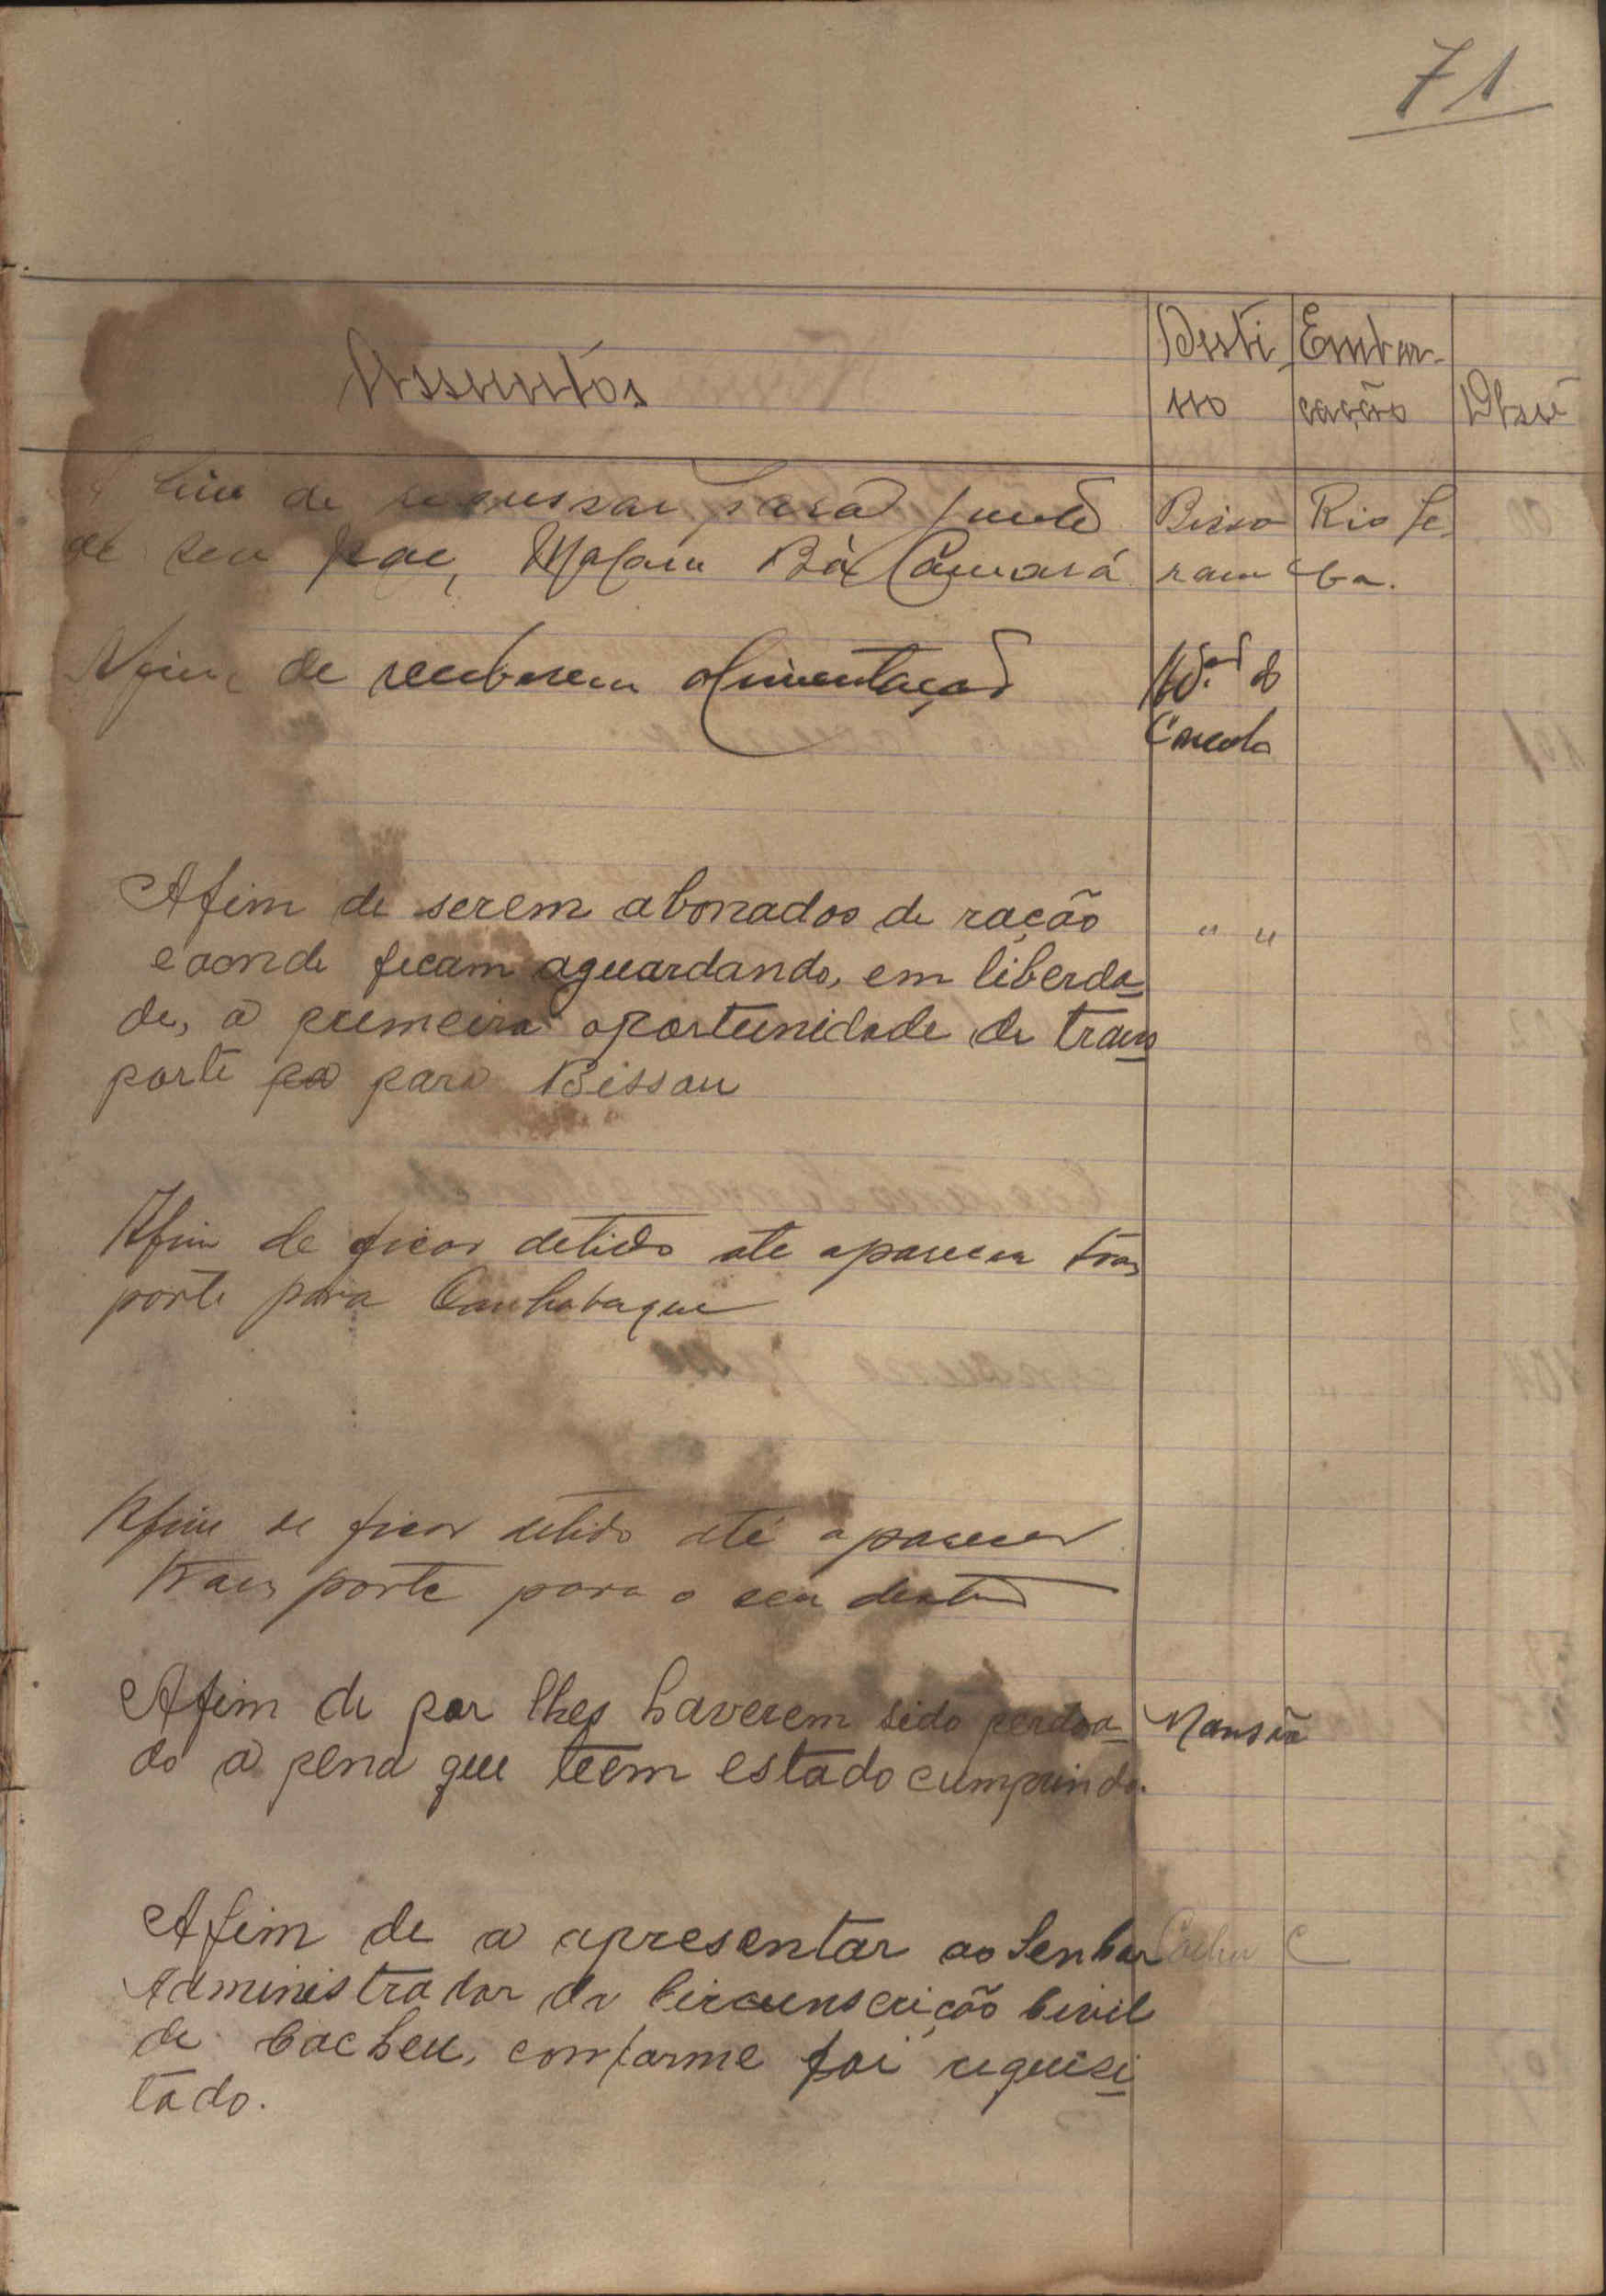 71
Assuntos
Desti Embar-
no cação Obsê
fim de regressar para junto Bisso Rio Ge
de seu pae, Malam Bá Camará ram ba.
Afim de receberem alimentação
Afim de serem abonados de ração " "
e aonde ficam aguardando, em liberda
de, a primeira oportunidade de trans
porte pa para Bissau
Afim de ficar detido ate aparecer trans
porte para Canhabaque
Afim de ficar detido até aparecer
transporte para o seu destino
Afim de por lhes haverem sido perdoa- Mansôa
do a pena que teem estado cumprindo.
Afim de a apresentar ao Senhor Cacheu
Administrador da Circunscrição Civil
de Cacheu, conforme foi requisi
tado.